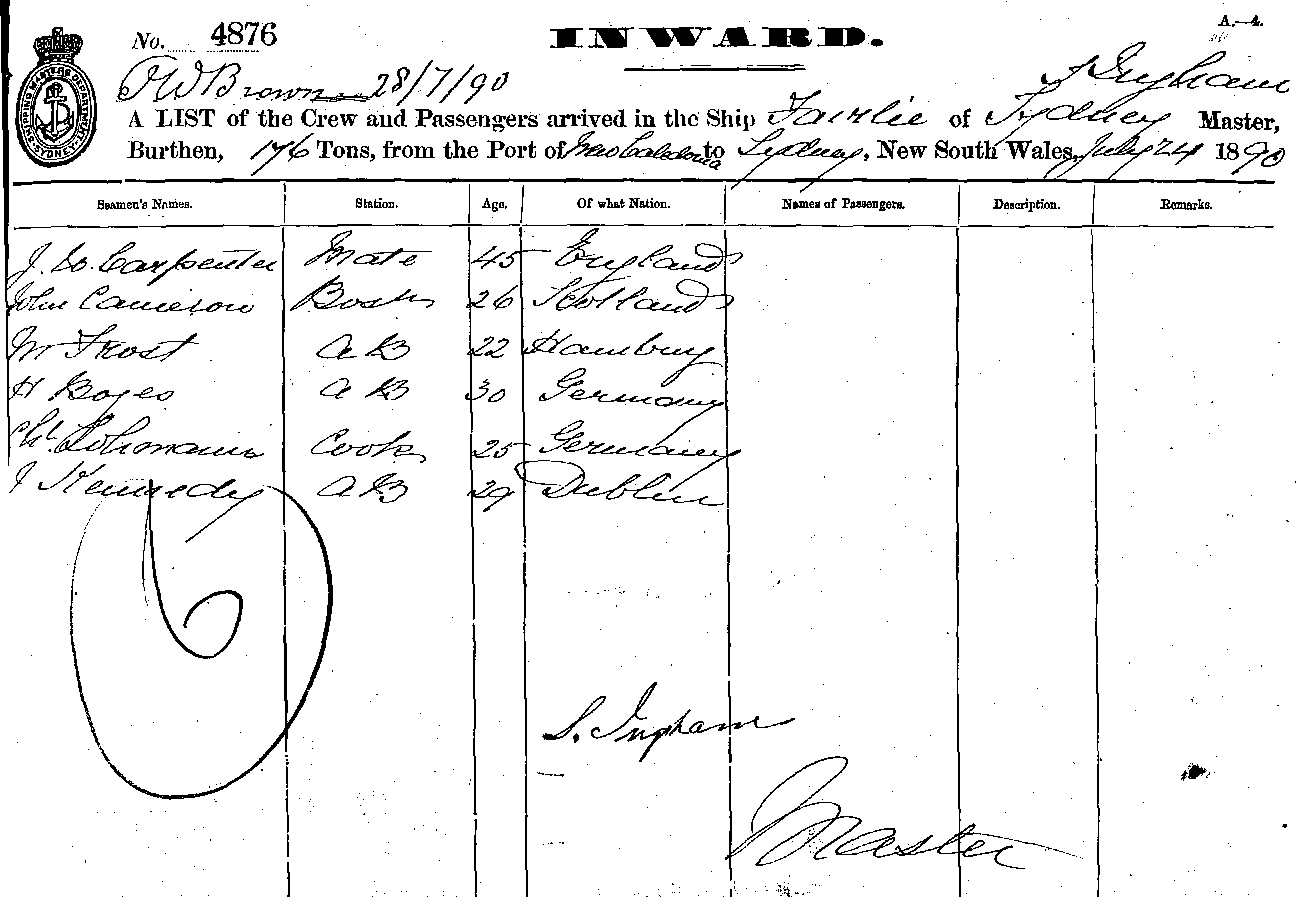 A.—4.
No. 4876 INWARD.
SHIPPING MASTER'S DEPARTMENT SYDNEY
Brown 28/7/90 Ingham
A LIST of the Crew and Passengers arrived in the Ship Fairlie of Sydney Master,
Burthen, 176 Tons, from the Port of New Caledonia to Sydney, New South Wales, July 24 1890
Seamen's Names. Station. Age. Of what Nation. Names of Passengers. Description. Remarks.
J. W. Carpenter Mate 45 England
John Cameron Bosn 26 Scotland
M Frost AB 22 Hamburg
H Boyes AB 30 Germany
Cook 25 Germany
J Kennedy AB 29 Dublin
6
S. Ingham
Master